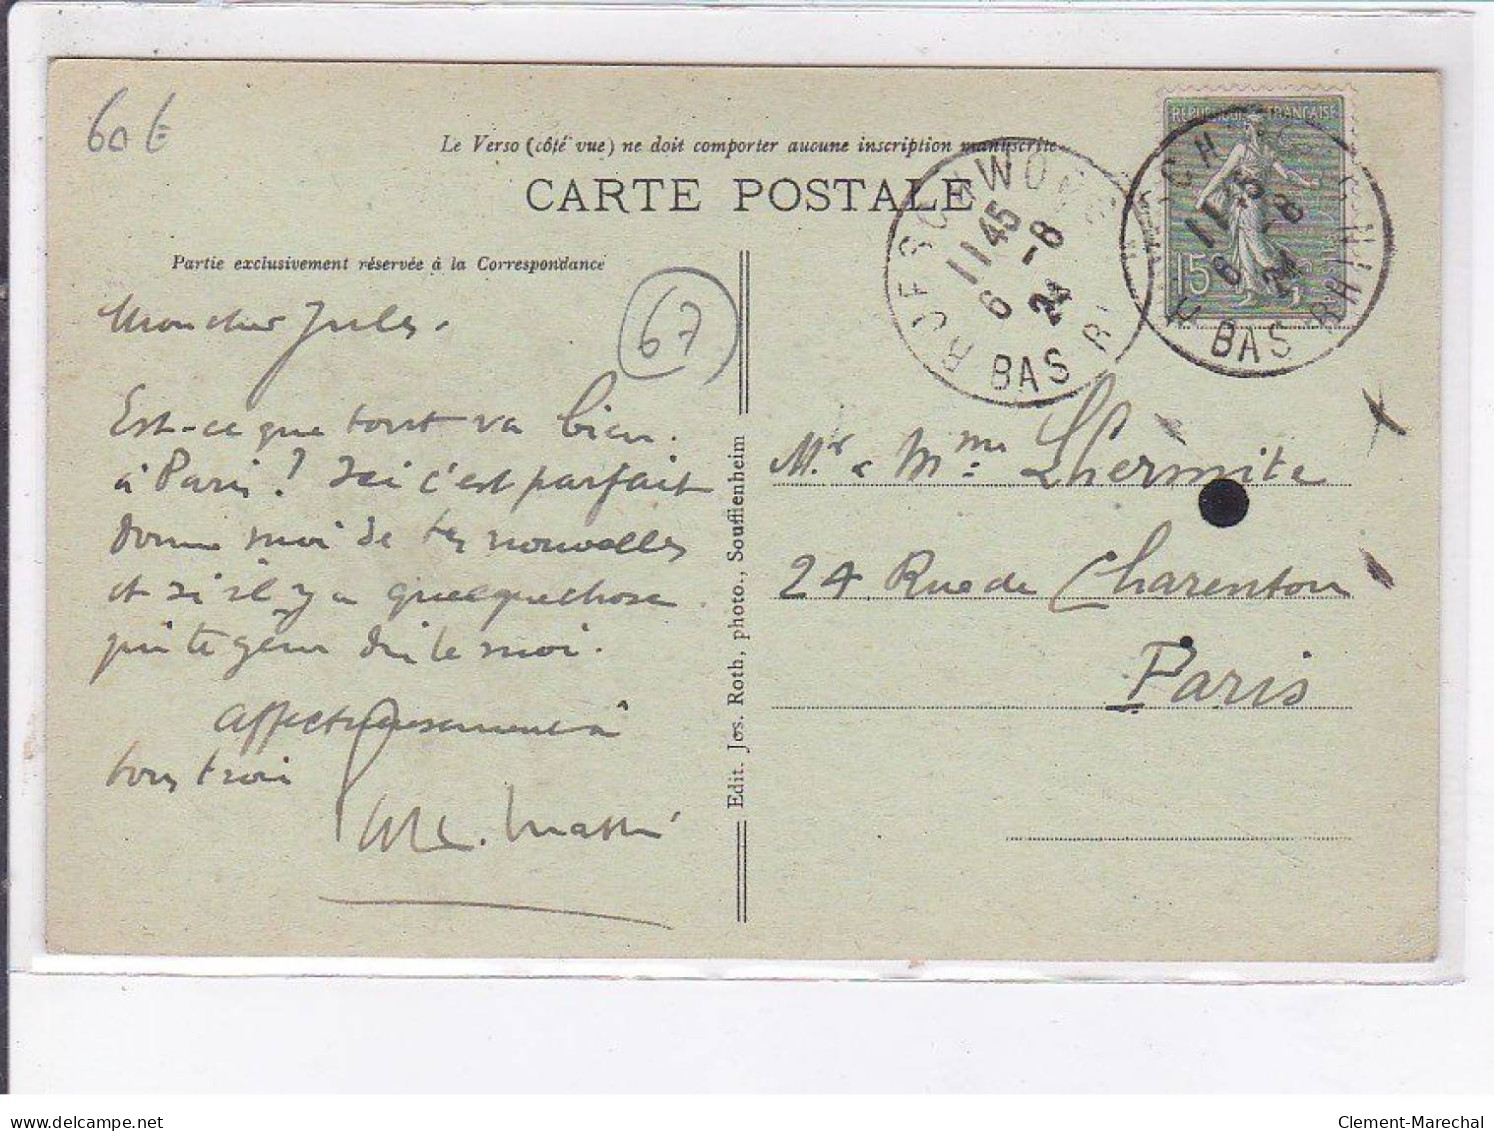 60 €
Le Verso (côté vue) ne doit comporter aucune inscription manuscrite
CARTE POSTALE
RÉPUBLIQUE FRANÇAISE
15
11 45
6 -8
24
BAS RHIN
11 45
6 -8
24
BAS R
Partie exclusivement réservée à la Correspondance
67
Mon cher Jules.
Est-ce que tout va bien.
à Paris? Ici c'est parfait
donne moi de tes nouvelles
et si il y a quelquechose.
qui te gêne dis le moi.
affectueusement à
tous trois
Edit. Jos. Roth, photo., Soufflenheim
Mr & Mme Lhermite
24 Rue de Charenton
Paris
delcampe.net
Clement-Marechal